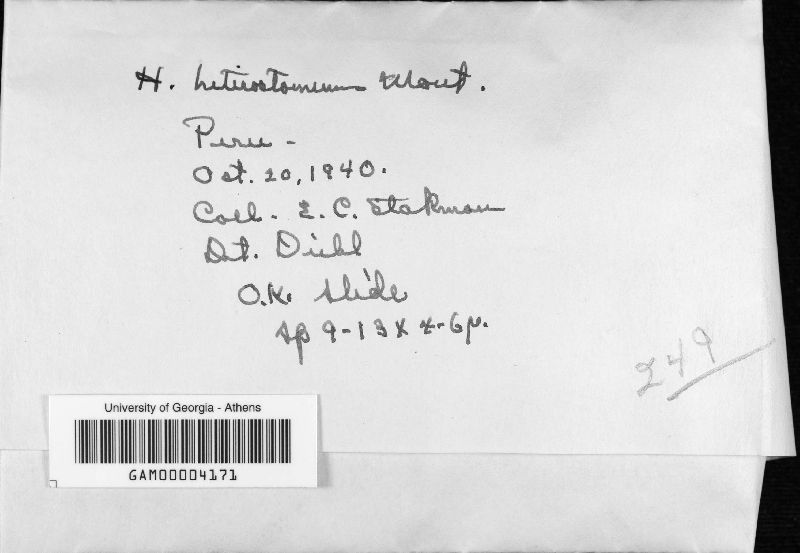 H. heterostomum Mont.
Peru -
Oct. 20, 1940.
Coll. E. C. Stakman
Det. Diehl
O.K. slide
sp 9-13 X 4-6µ.
249
University of Georgia - Athens
GAM00004171